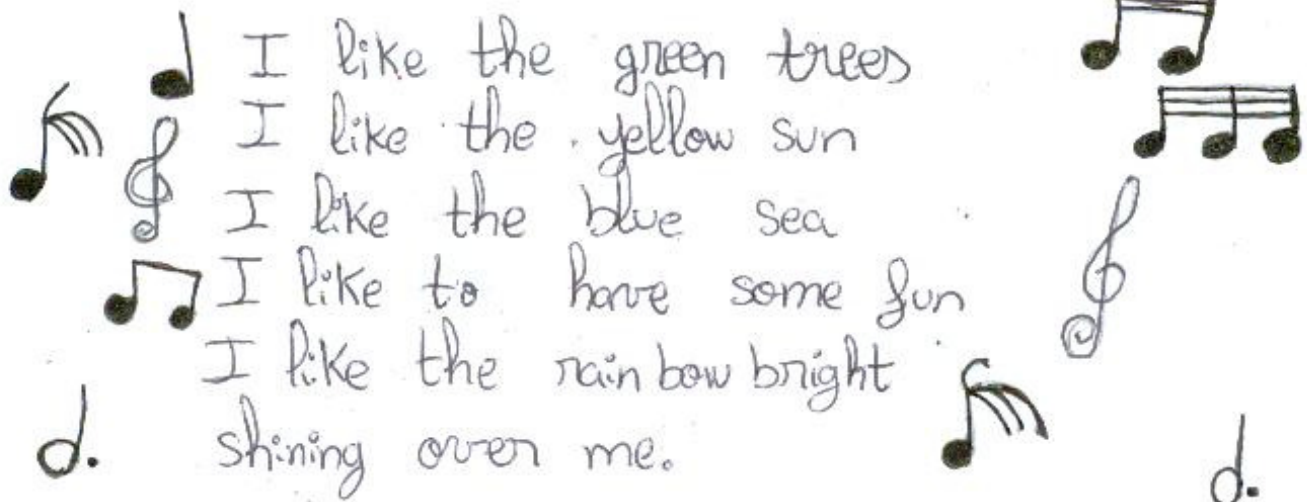 I like the green trees
I like the yellow sun
I like the blue sea
I like to have some fun
I like the rain bow bright
shining over me.